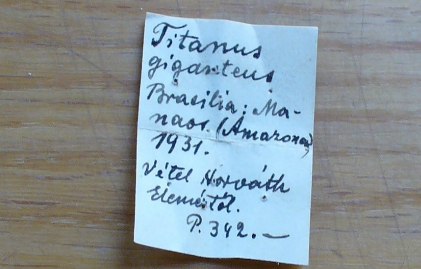 Titanus
giganteus
Brasilia: Ma-
naos. (Amazonas)
1931.
Vétel Horváth
Elemértől.
P. 342.–